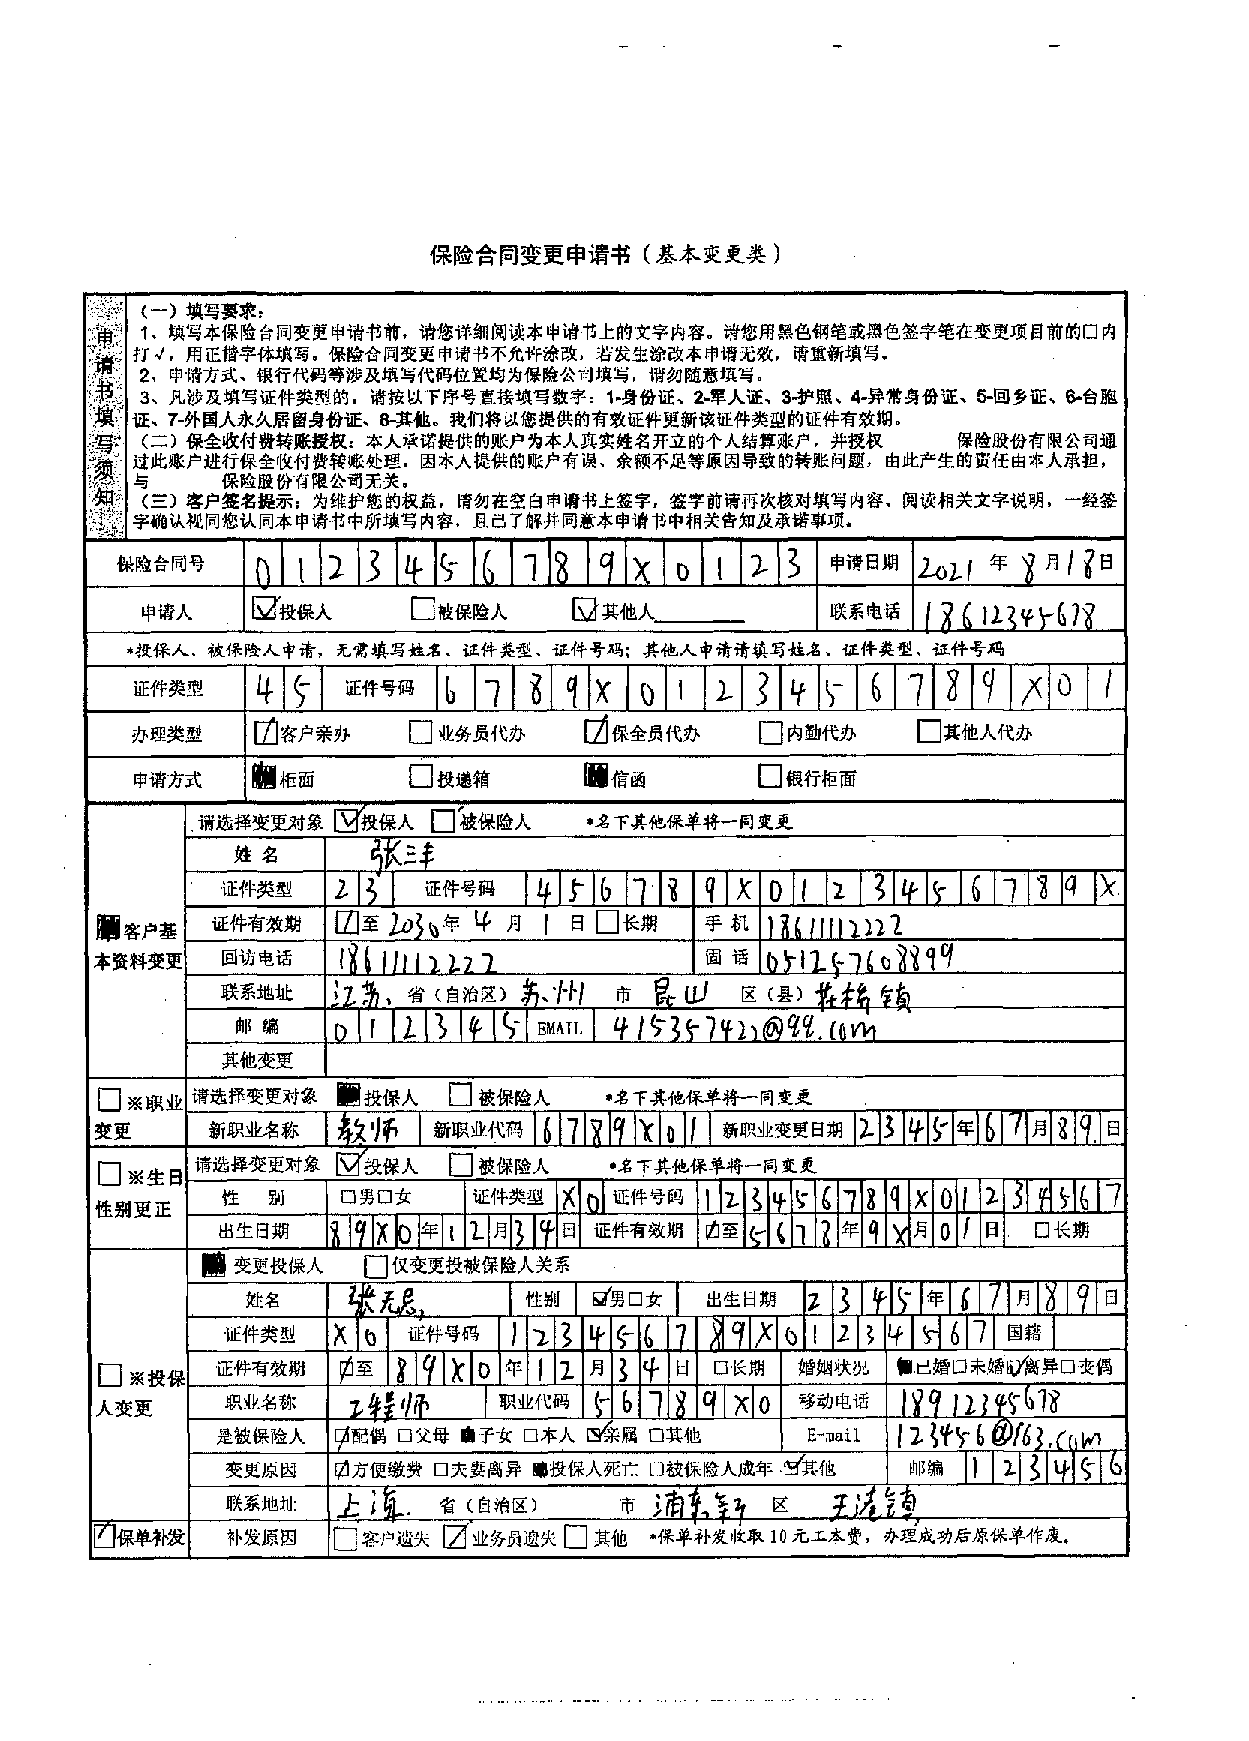 保险合同变更申请书（基本变更类）
申请书填写须知
（一）填写要求：
1、填写本保险合同变更申请书前，请您详细阅读本申请书上的文字内容。请您用黑色钢笔或黑色签字笔在变更项目前的□内
打√，用正楷字体填写。保险合同变更申请书不允许涂改，若发生涂改本申请无效，请重新填写。
2、申请方式、银行代码等涉及填写代码位置均为保险公司填写，请勿随意填写。
3、凡涉及填写证件类型的，请按以下序号直接填写数字：1-身份证、2-军人证、3-护照、4-异常身份证、5-回乡证、6-台胞
证、7-外国人永久居留身份证、8-其他。我们将以您提供的有效证件更新该证件类型的证件有效期。
（二）保全收付费转账授权：本人承诺提供的账户为本人真实姓名开立的个人结算账户，并授权 保险股份有限公司通
过此账户进行保全收付费转账处理。因本人提供的账户有误、余额不足等原因导致的转账问题，由此产生的责任由本人承担，
与 保险股份有限公司无关。
（三）客户签名提示：为维护您的权益，请勿在空白申请书上签字，签字前请再次核对填写内容、阅读相关文字说明，一经签
字确认视同您认同本申请书中所填写内容，且已了解并同意本申请书中相关告知及承诺事项。
保险合同号 0123456789X0123 申请日期 2021年8月18日
申请人 ☑投保人 □被保险人 ☑其他人 联系电话 18612345678
*投保人、被保险人申请，无需填写姓名、证件类型、证件号码；其他人申请请填写姓名、证件类型、证件号码
证件类型 45 证件号码 6789X0123456789X01
办理类型 ☑客户亲办 □业务员代办 ☑保全员代办 □内勤代办 □其他人代办
申请方式 ■柜面 □投递箱 ■信函 □银行柜面
■客户基本资料变更
请选择变更对象 ☑投保人 □被保险人 *名下其他保单将一同变更
姓名 张三丰
证件类型 23 证件号码 456789X0123456789X
证件有效期 ☑至2030年4月1日 □长期 手机 18611112222
回访电话 18611112222 固话 051257608899
联系地址 江苏 省（自治区）苏州 市 昆山 区（县）花桥镇
邮编 012345 EMAIL 415357422@qq.com
其他变更
□※职业变更
请选择变更对象 ■投保人 □被保险人 *名下其他保单将一同变更
新职业名称 教师 新职业代码 6789X01 新职业变更日期 2345年67月89日
□※生日性别更正
请选择变更对象 ☑投保人 □被保险人 *名下其他保单将一同变更
性别 □男□女 证件类型 X0 证件号码 123456789X01234567
出生日期 89X0年12月34日 证件有效期 ☑至5678年9X月01日 □长期
□※投保人变更
■变更投保人 □仅变更投被保险人关系
姓名 张无忌 性别 ☑男□女 出生日期 2345年67月89日
证件类型 X0 证件号码 123456789X01234567 国籍
证件有效期 ☑至89X0年12月34日 □长期 婚姻状况 ■已婚□未婚☑离异□丧偶
职业名称 工程师 职业代码 56789X0 移动电话 18912345678
是被保险人 ☑配偶 □父母 ■子女 □本人 ☑亲属 □其他 E-mail 123456@163.com
变更原因 ☑方便缴费 □夫妻离异 ■投保人死亡 □被保险人成年 ☑其他 邮编 123456
联系地址 上海 省（自治区） 市 浦东新 区 王港镇
☑保单补发 补发原因 □客户遗失 ☑业务员遗失 □其他 *保单补发收取10元工本费，办理成功后原保单作废。